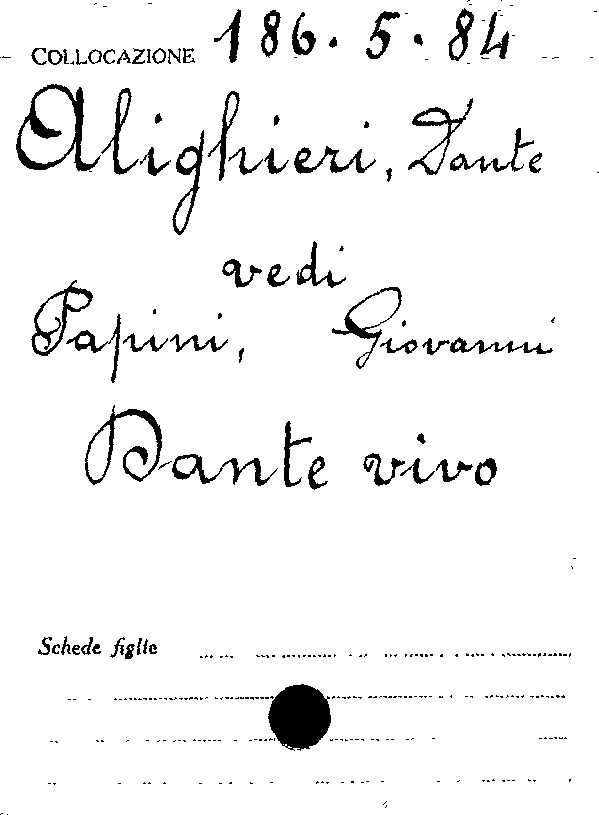 COLLOCAZIONE 186.5.84
Alighieri, Dante
vedi
Papini, Giovanni
Dante vivo
Schede figlie